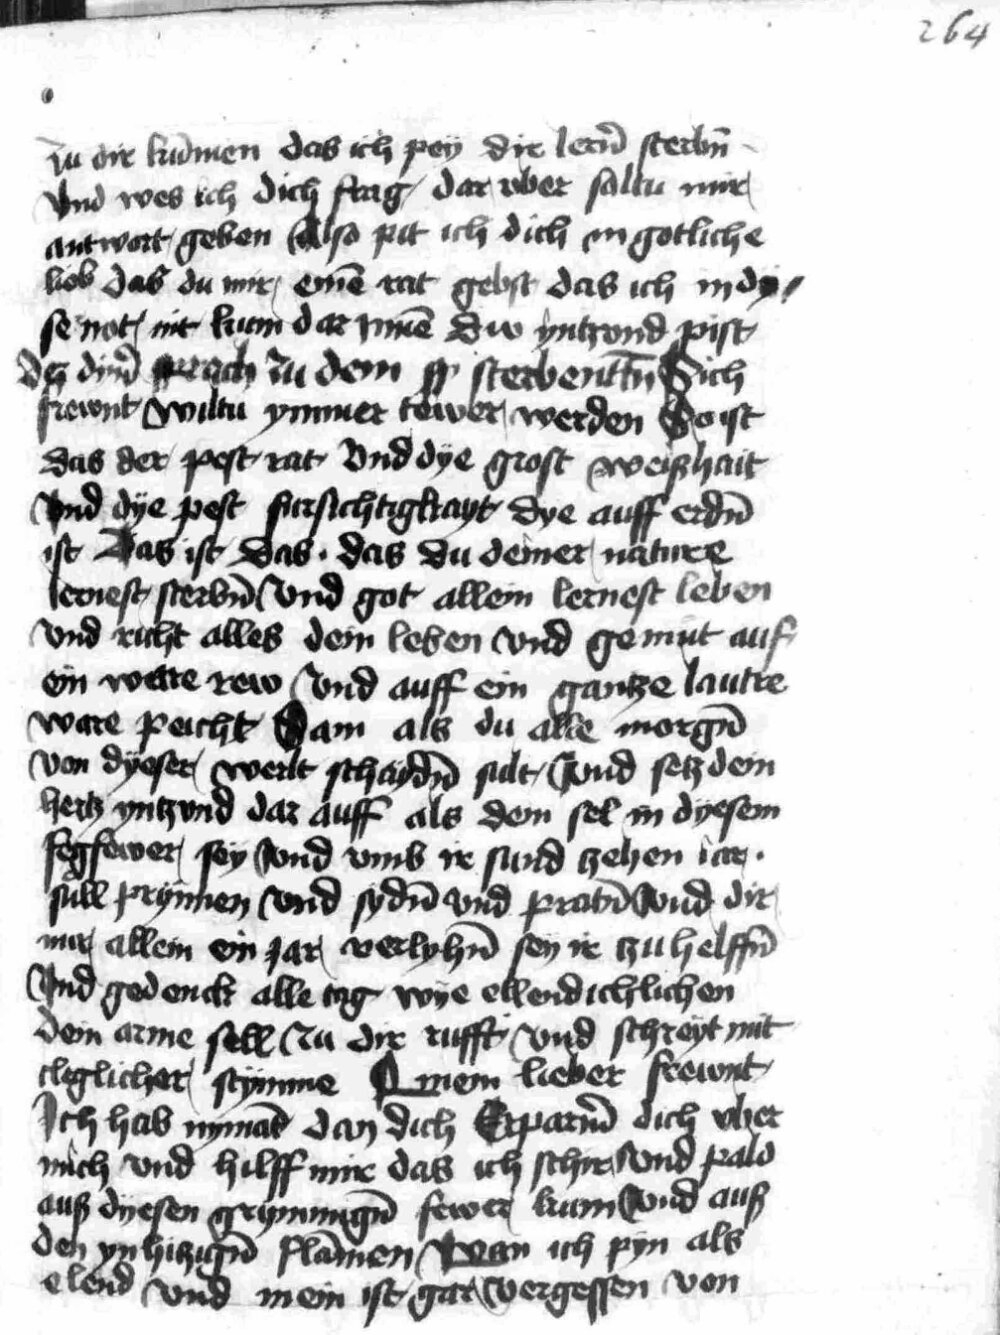 264
zu dir kumen das ich pey dir lern̄ sterbn̄
Vnd wes ich dich frag dar vber soltu mir
antwort geben Also pit ich dich in gotliche
lieb das du mir einē rat gebst das ich in dy
se not nit kum dar jnnē Diw yntzond pist
sprach zu dem sterbenttn̄ Sich
frewnt wiltu ymmer tewer werden So ist
das der pest rat Vnd dÿe grost weißhait
Vnd dÿe pest fursichtigkayt dye auff erdn̄
ist Das ist das · das du deiner nature
lernest sterbn̄ Vnd got allein lernest leben
vnd richt alles dein leben vnd gemüt auf
ein ware rew Vnd auff ein gantze lautre
ware peicht Sam als du alle morgn̄
von dyeser werlt schaydn̄ sult Vnd setz dein
hertz yntzvnd dar auff als dein sel in dyesem
fegfewer sey Vnd vmb ir sund zehen iar ·
sull prynnen vnd sydn̄ vnd pratn̄ Vnd dir
nur allein ein jar verlyhn̄ sey ir zu helffn̄
Vnd gedenck alle tag wye ellendichlichen
dein arme sell zu dir rufft vnd schreyt mit
cleglicher stymme O mein lieber frewnt
Ich hab nymāt dan dich Erparm̄ dich vber
mich vnd hilff mir das ich schir Vnd pald
auß dyesen grymmign̄ fewer kum Vnd auß
den ynhitzign̄ flamen Wan ich pyn als
elend vnd mein ist gar vergessen von